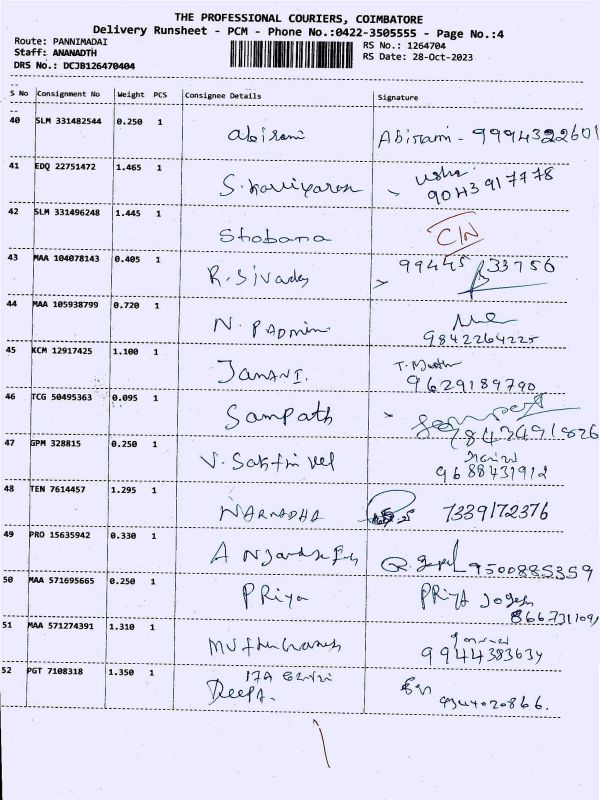 THE PROFESSIONAL COURIERS, COIMBATORE
Delivery Runsheet - PCM - Phone No.:0422-3505555 - Page No.:4
Route: PANNIMADAI
RS No.: 1264704
Staff: ANANADTH
RS Date: 28-Oct-2023
DRS No.: DCJB126470404
S No Consignment No Weight PCS Consignee Details Signature
40 SLM 331482544 0.250 1 abirami Abirami - 9994322601
41 EDQ 22751472 1.465 1 S. Usha
9043917778
42 SLM 331496248 1.445 1 Shobana C/N
43 MAA 104078143 0.405 1 R. Sivadas 99445 33756
44 MAA 105938799 0.720 1 N. PADmini
9842264225
45 KCM 12917425 1.100 1 JANANI. T.
9629189790
46 TCG 50495363 0.095 1 Sampath
7843491826
47 GPM 328815 0.250 1 V. Sakthivel
9688431912
48 TEN 7614457 1.295 1 NARMADHA 7339172376
49 PRO 15635942 0.330 1 A 9500885359
50 MAA 571695665 0.250 1 PRiya PRiya
8667311091
51 MAA 571274391 1.310 1
9944383634
52 PGT 7108318 1.350 1 17A
Deepa. 9344020866.